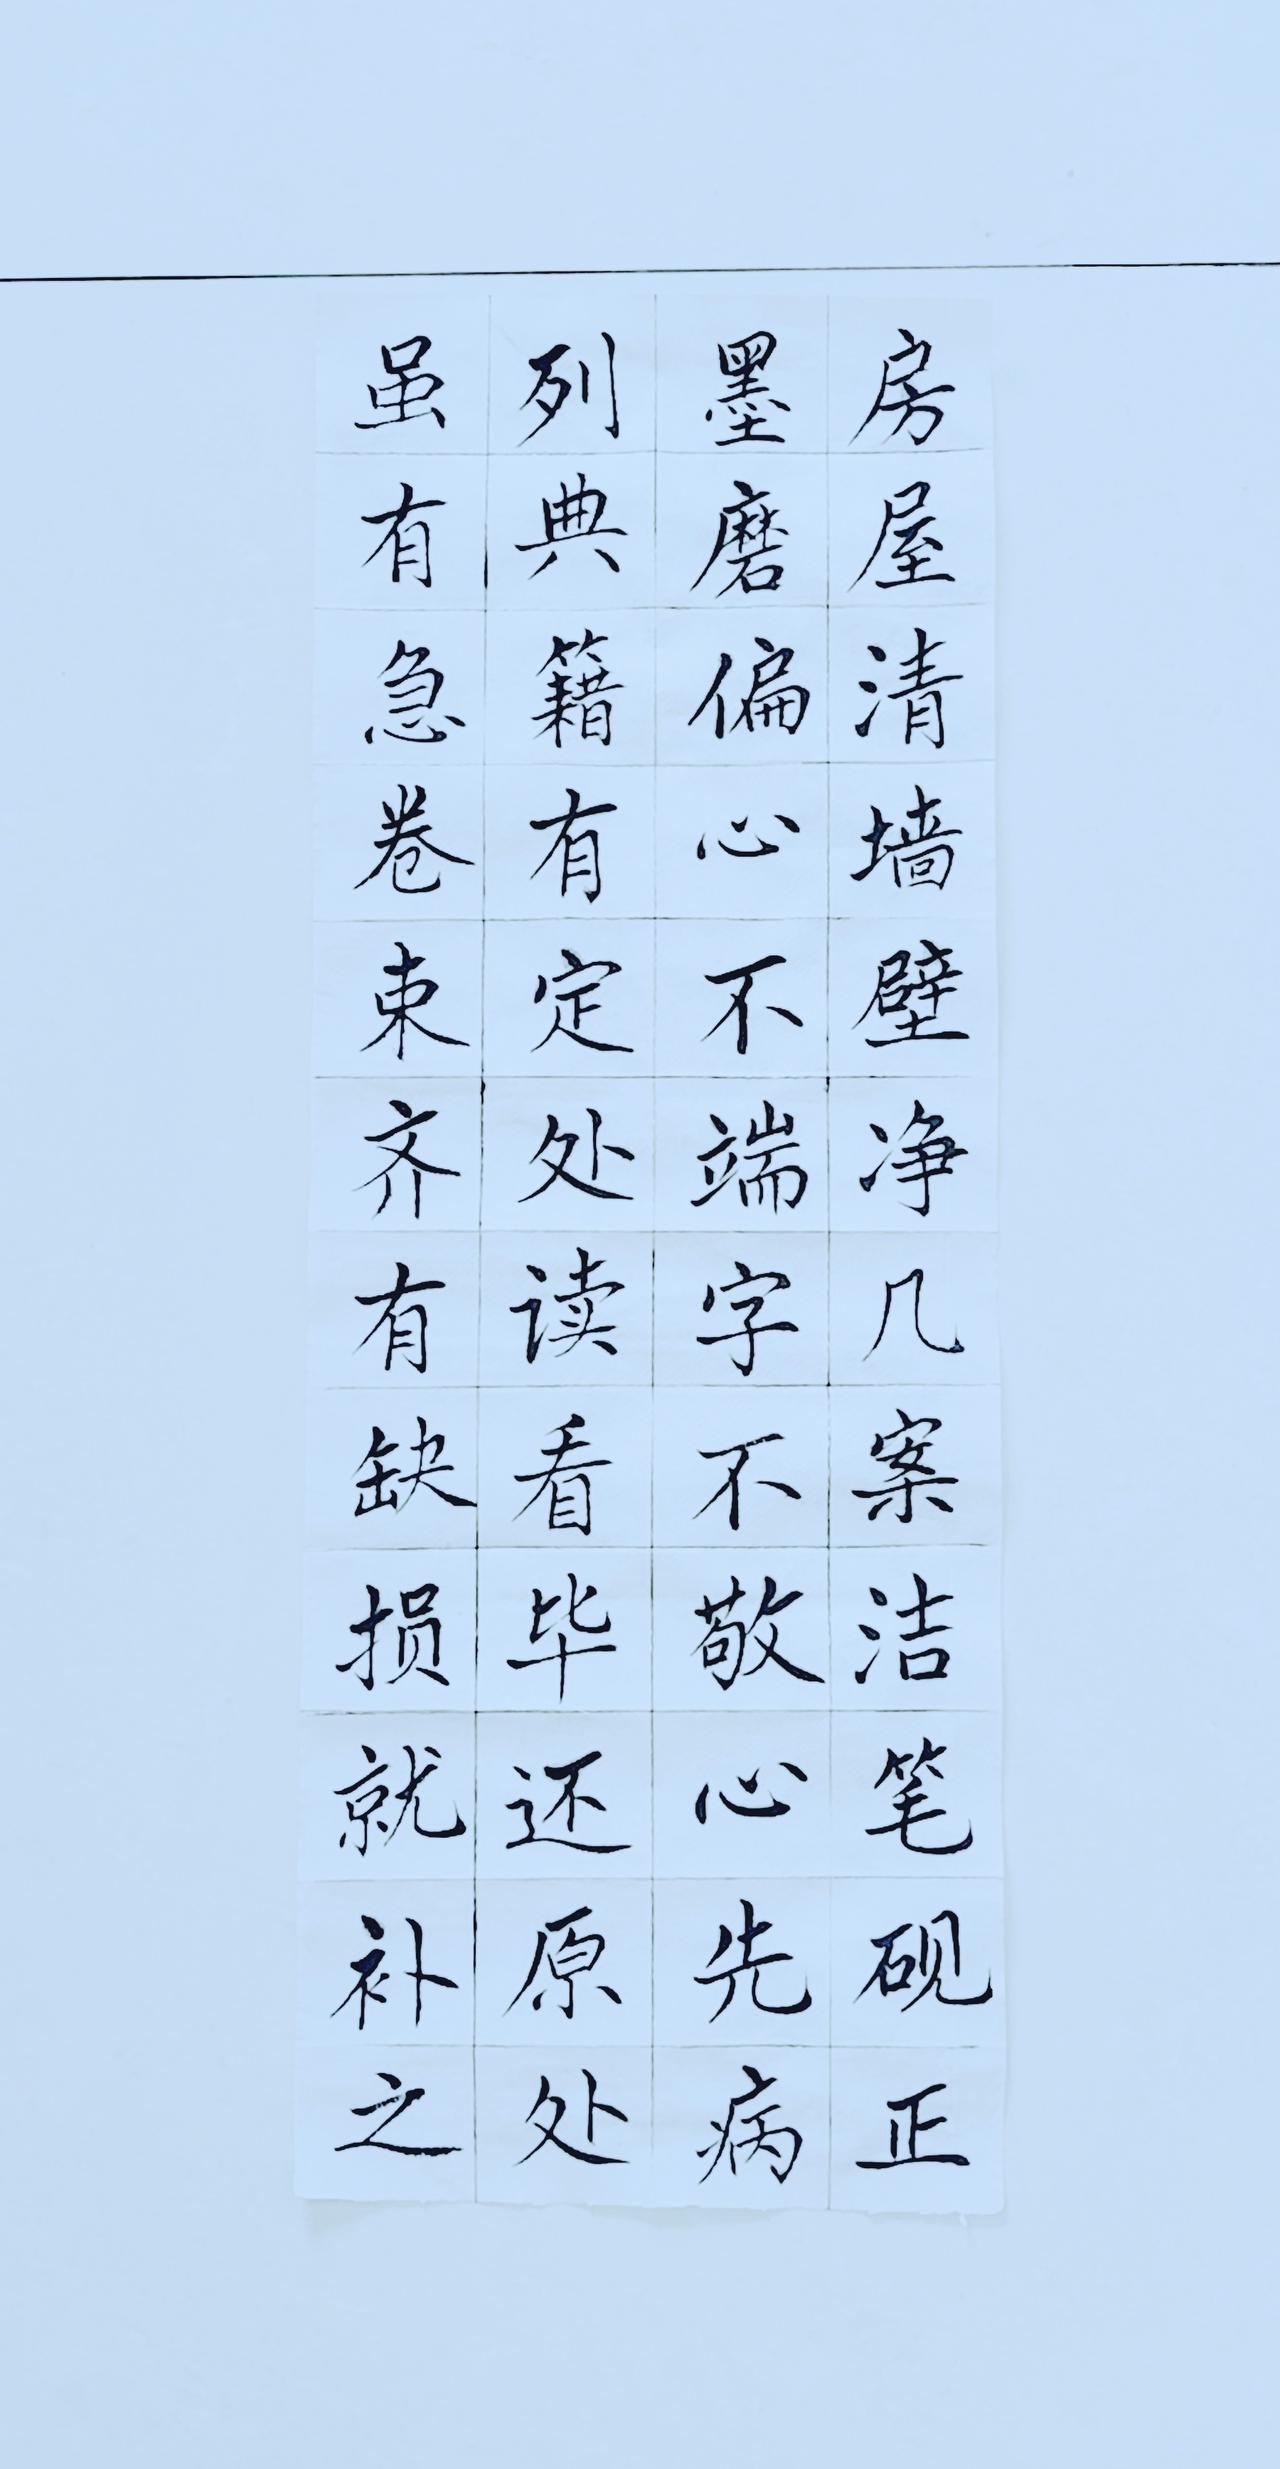 房屋清墙壁净几案洁笔砚正
墨磨偏心不端字不敬心先病
列典籍有定处读看毕还原处
虽有急卷束齐有缺损就补之